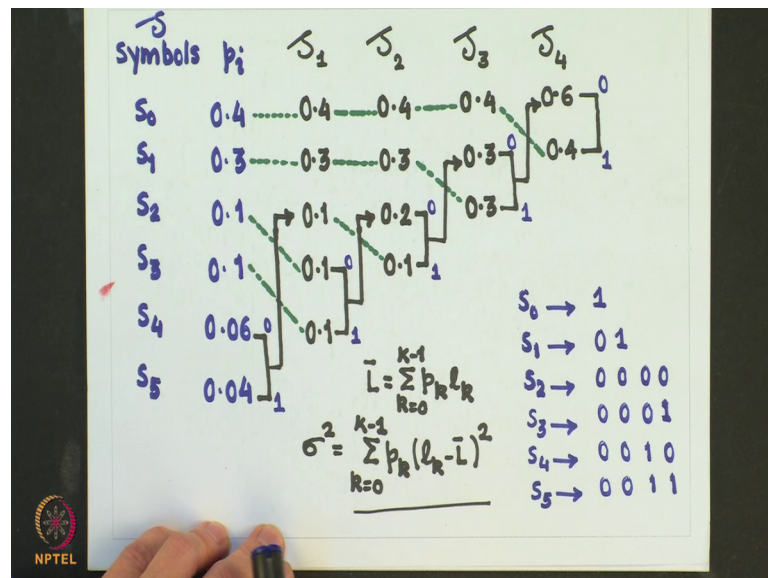 S
Symbols pᵢ S₁ S₂ S₃ S₄
S₀ 0.4 0.4 0.4 0.4 0.6 0
S₁ 0.3 0.3 0.3 0.3 0 0.4 1
S₂ 0.1 0.1 0.2 0 0.3 1
S₃ 0.1 0.1 0 0.1 1
S₄ 0.06 0 0.1 1
S₅ 0.04 1
L̄ = Σ_{k=0}^{K-1} pₖ lₖ
σ² = Σ_{k=0}^{K-1} pₖ (lₖ - L̄)²
S₀ → 1
S₁ → 0 1
S₂ → 0 0 0 0
S₃ → 0 0 0 1
S₄ → 0 0 1 0
S₅ → 0 0 1 1
NPTEL